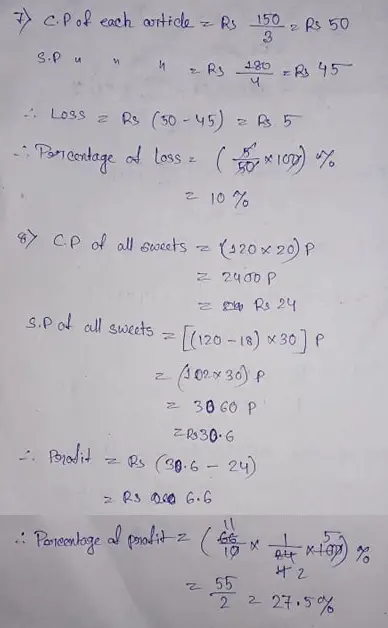 7) C.P of each article = Rs 150/3 = Rs 50
S.P " " " = Rs 180/4 = Rs 45
∴ Loss = Rs (50 - 45) = Rs 5
∴ Percentage of loss = (5/50 × 100) %
= 10 %
8) C.P of all sweets = (120 × 20) P
= 2400 P
= Rs 24
S.P of all sweets = [(120 - 18) × 30] P
= (102 × 30) P
= 3060 P
= Rs 30.6
∴ Profit = Rs (30.6 - 24)
= Rs 6.6
∴ Percentage of profit = (66/10 × 1/24 × 100) %
= 55/2 = 27.5 %